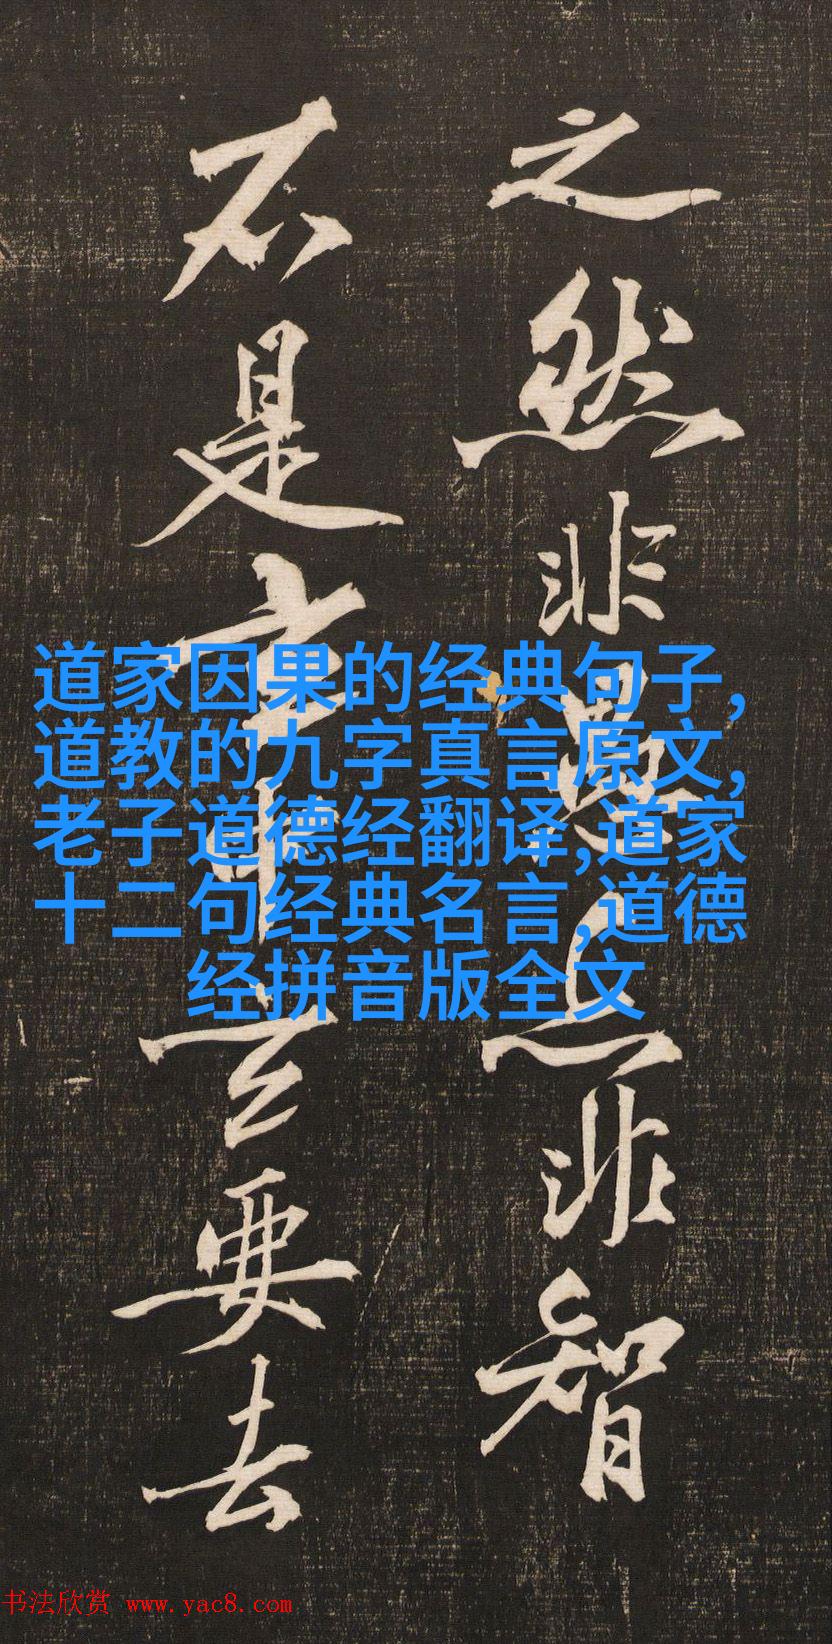 之然非愚非智
不是要去
道家因果的经典句子,
道教的九字真言原文,
老子道德经翻译,道家
十二句经典名言,道德
经拼音版全文
书法欣赏 www.yac8.com